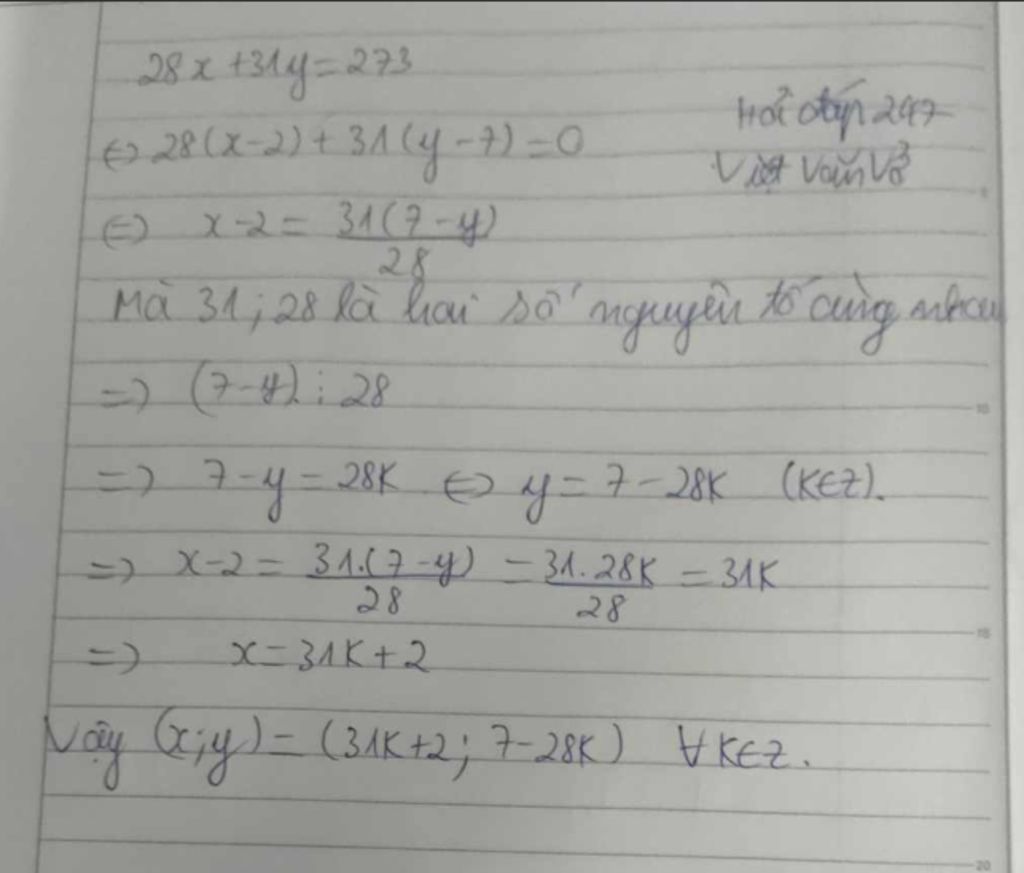 28x + 31y = 273
⇔ 28(x-2) + 31(y-7) = 0
Hỏi đáp 247
Việt Văn Vở
⇔ x-2 = 31(7-y)/28
Mà 31; 28 là hai số nguyên tố cùng nhau
=> (7-y) ⋮ 28
=> 7-y = 28K ⇔ y = 7-28K (K∈Z).
=> x-2 = 31.(7-y)/28 = 31.28K/28 = 31K
=> x = 31K+2
Vậy (x;y) = (31K+2; 7-28K) ∀K∈Z.
10
15
20